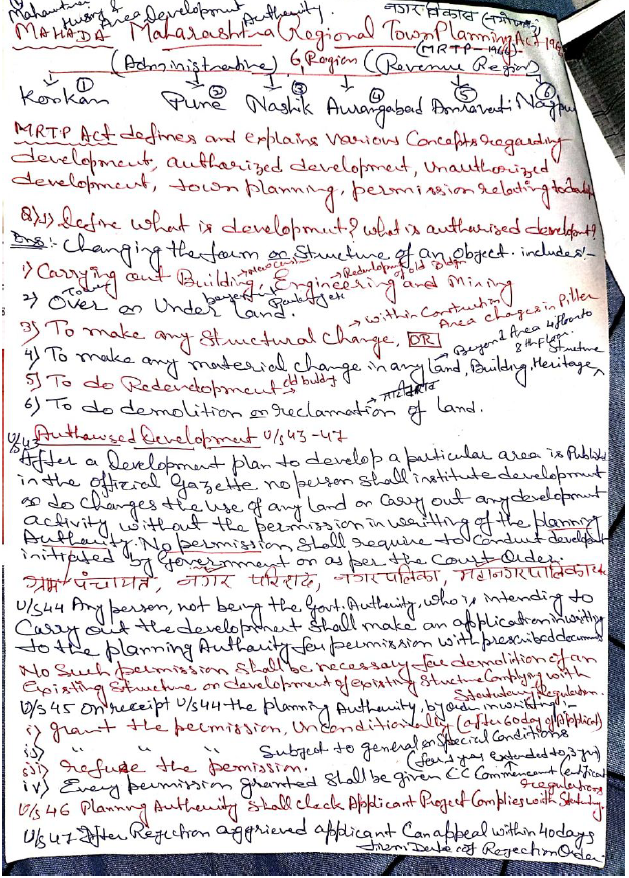 Maharashtra Housing & Area Development Authority.
MAHADA Maharashtra (Regional Town Planning Act 1966
(MRTP-1966)
(Administrative) 6, Region (Revenue Region)
① ② ③ ④ ⑤ ⑥
Konkan Pune Nashik Aurangabad Amravati Nagpur
MRTP Act defines and explains various Concepts regarding
development, autharized development, unautharized
development, town planning, permission relating to
Q.1) Define what is development? what is authorised
Ans:- Changing the form or Structure of an object. includes!-
1) Carrying out Building, Engineering and Mining
→ Redevelopment of old Bldg
2) Over or Under Land.
→ within Construction
Area changes in Piller
3) To make any Structural Change, OR
→ Beyond Area 4 floor to
8th Floor
4) To make any material change in any land, Building, Heritage, Structure
5) To do Redevelopment → old buildg
6) To do demolition or reclamation of land.
U/S 43 Authorised Development U/S 43-47
After a Development plan to develop a particular area is Publishd
in the official Gazette no person shall institute development
or do changes the use of any land or Carry out any development
activity without the permission in writting of the planning
Authority. No permission Shall require to Conduct develop
initiated by Government or as per the Court Order.
ग्राम पंचायत, नगर परिषद, नगरपालिका, महानगरपालिका
U/S 44 Any person, not being the Govt. Authority, who is intending to
Carry out the development Shall make an application in writing
to the planning Authority for permission with prescribed
No Such permission Shall be necessary for demolition of an
Existing Structure or development of existing structure Complying with
Statutory Regulation.
U/S 45 On receipt U/S 44 the planning Authority, by order in writing:-
i) grant the permission, Unconditionally (after 60 day of
ii) " " " Subject to general or Special Conditions
(for 1 year extended to 3 yr)
iii) refuse the permission.
iv) Every permission granted Shall be given CC Commencement Certificate
regulations
U/S 46 Planning Authority Shall check Applicant Project Complies with
U/S 47 After Rejection aggrieved applicant Can appeal within 40 days
from Date of Rejection Order.